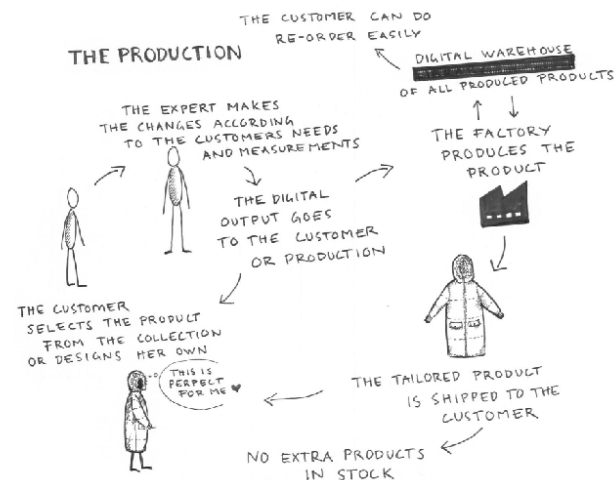 THE PRODUCTION
THE CUSTOMER CAN DO
RE-ORDER EASILY
DIGITAL WAREHOUSE
OF ALL PRODUCED PRODUCTS
THE EXPERT MAKES
THE CHANGES ACCORDING
TO THE CUSTOMERS NEEDS
AND MEASUREMENTS
THE FACTORY
PRODUCES THE
PRODUCT
THE DIGITAL
OUTPUT GOES
TO THE CUSTOMER
OR PRODUCTION
THE CUSTOMER
SELECTS THE PRODUCT
FROM THE COLLECTION
OR DESIGNS HER OWN
THIS IS
PERFECT
FOR ME ♥
THE TAILORED PRODUCT
IS SHIPPED TO THE
CUSTOMER
NO EXTRA PRODUCTS
IN STOCK